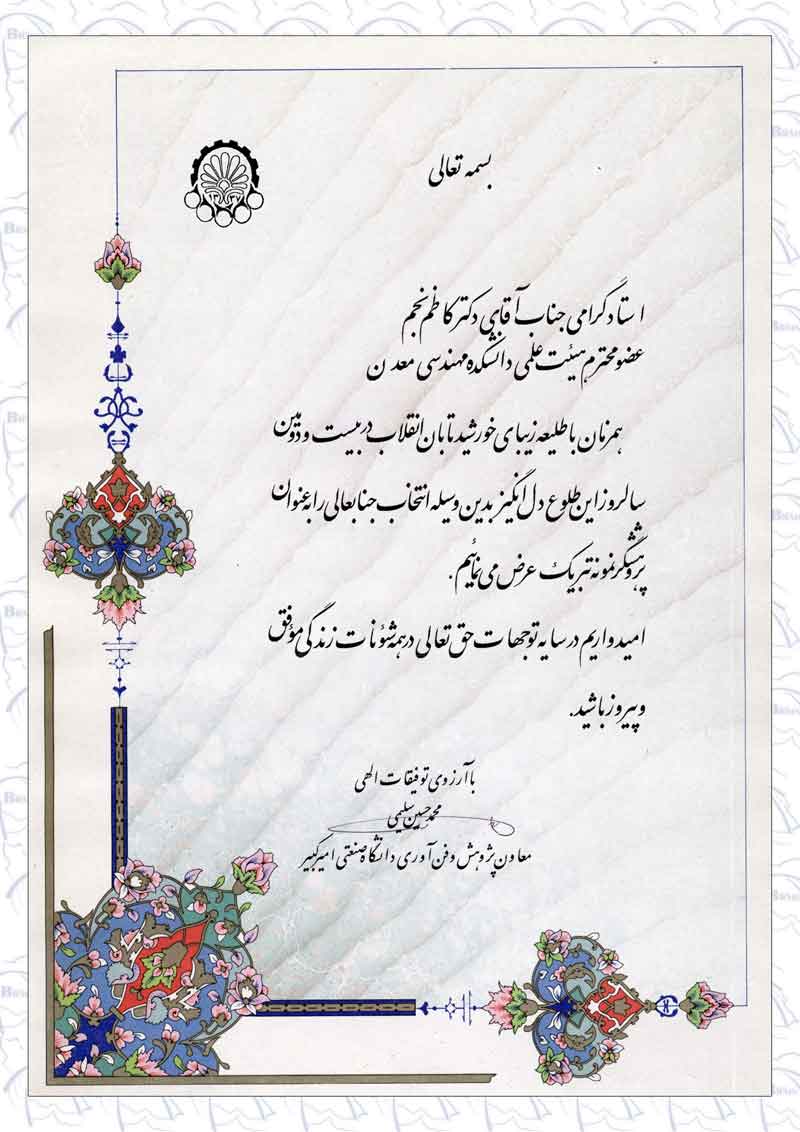 بسمه تعالی
استاد گرامی جناب آقای دکتر کاظم نجم
عضو محترم هیئت علمی دانشکده مهندسی معدن
همزمان با طلیعه زیبای خورشید تابان انقلاب در بیست و دومین
سالروز این طلوع دل انگیز بدین وسیله انتخاب جنابعالی را به عنوان
پژوهشگر نمونه تبریک عرض می نمائیم.
امیدواریم در سایه توجهات حق تعالی در همه شئونات زندگی مؤفق
و پیروز باشید.
با آرزوی توفیقات الهی
محمد حسین سلیمی
معاون پژوهش و فن آوری دانشگاه صنعتی امیرکبیر